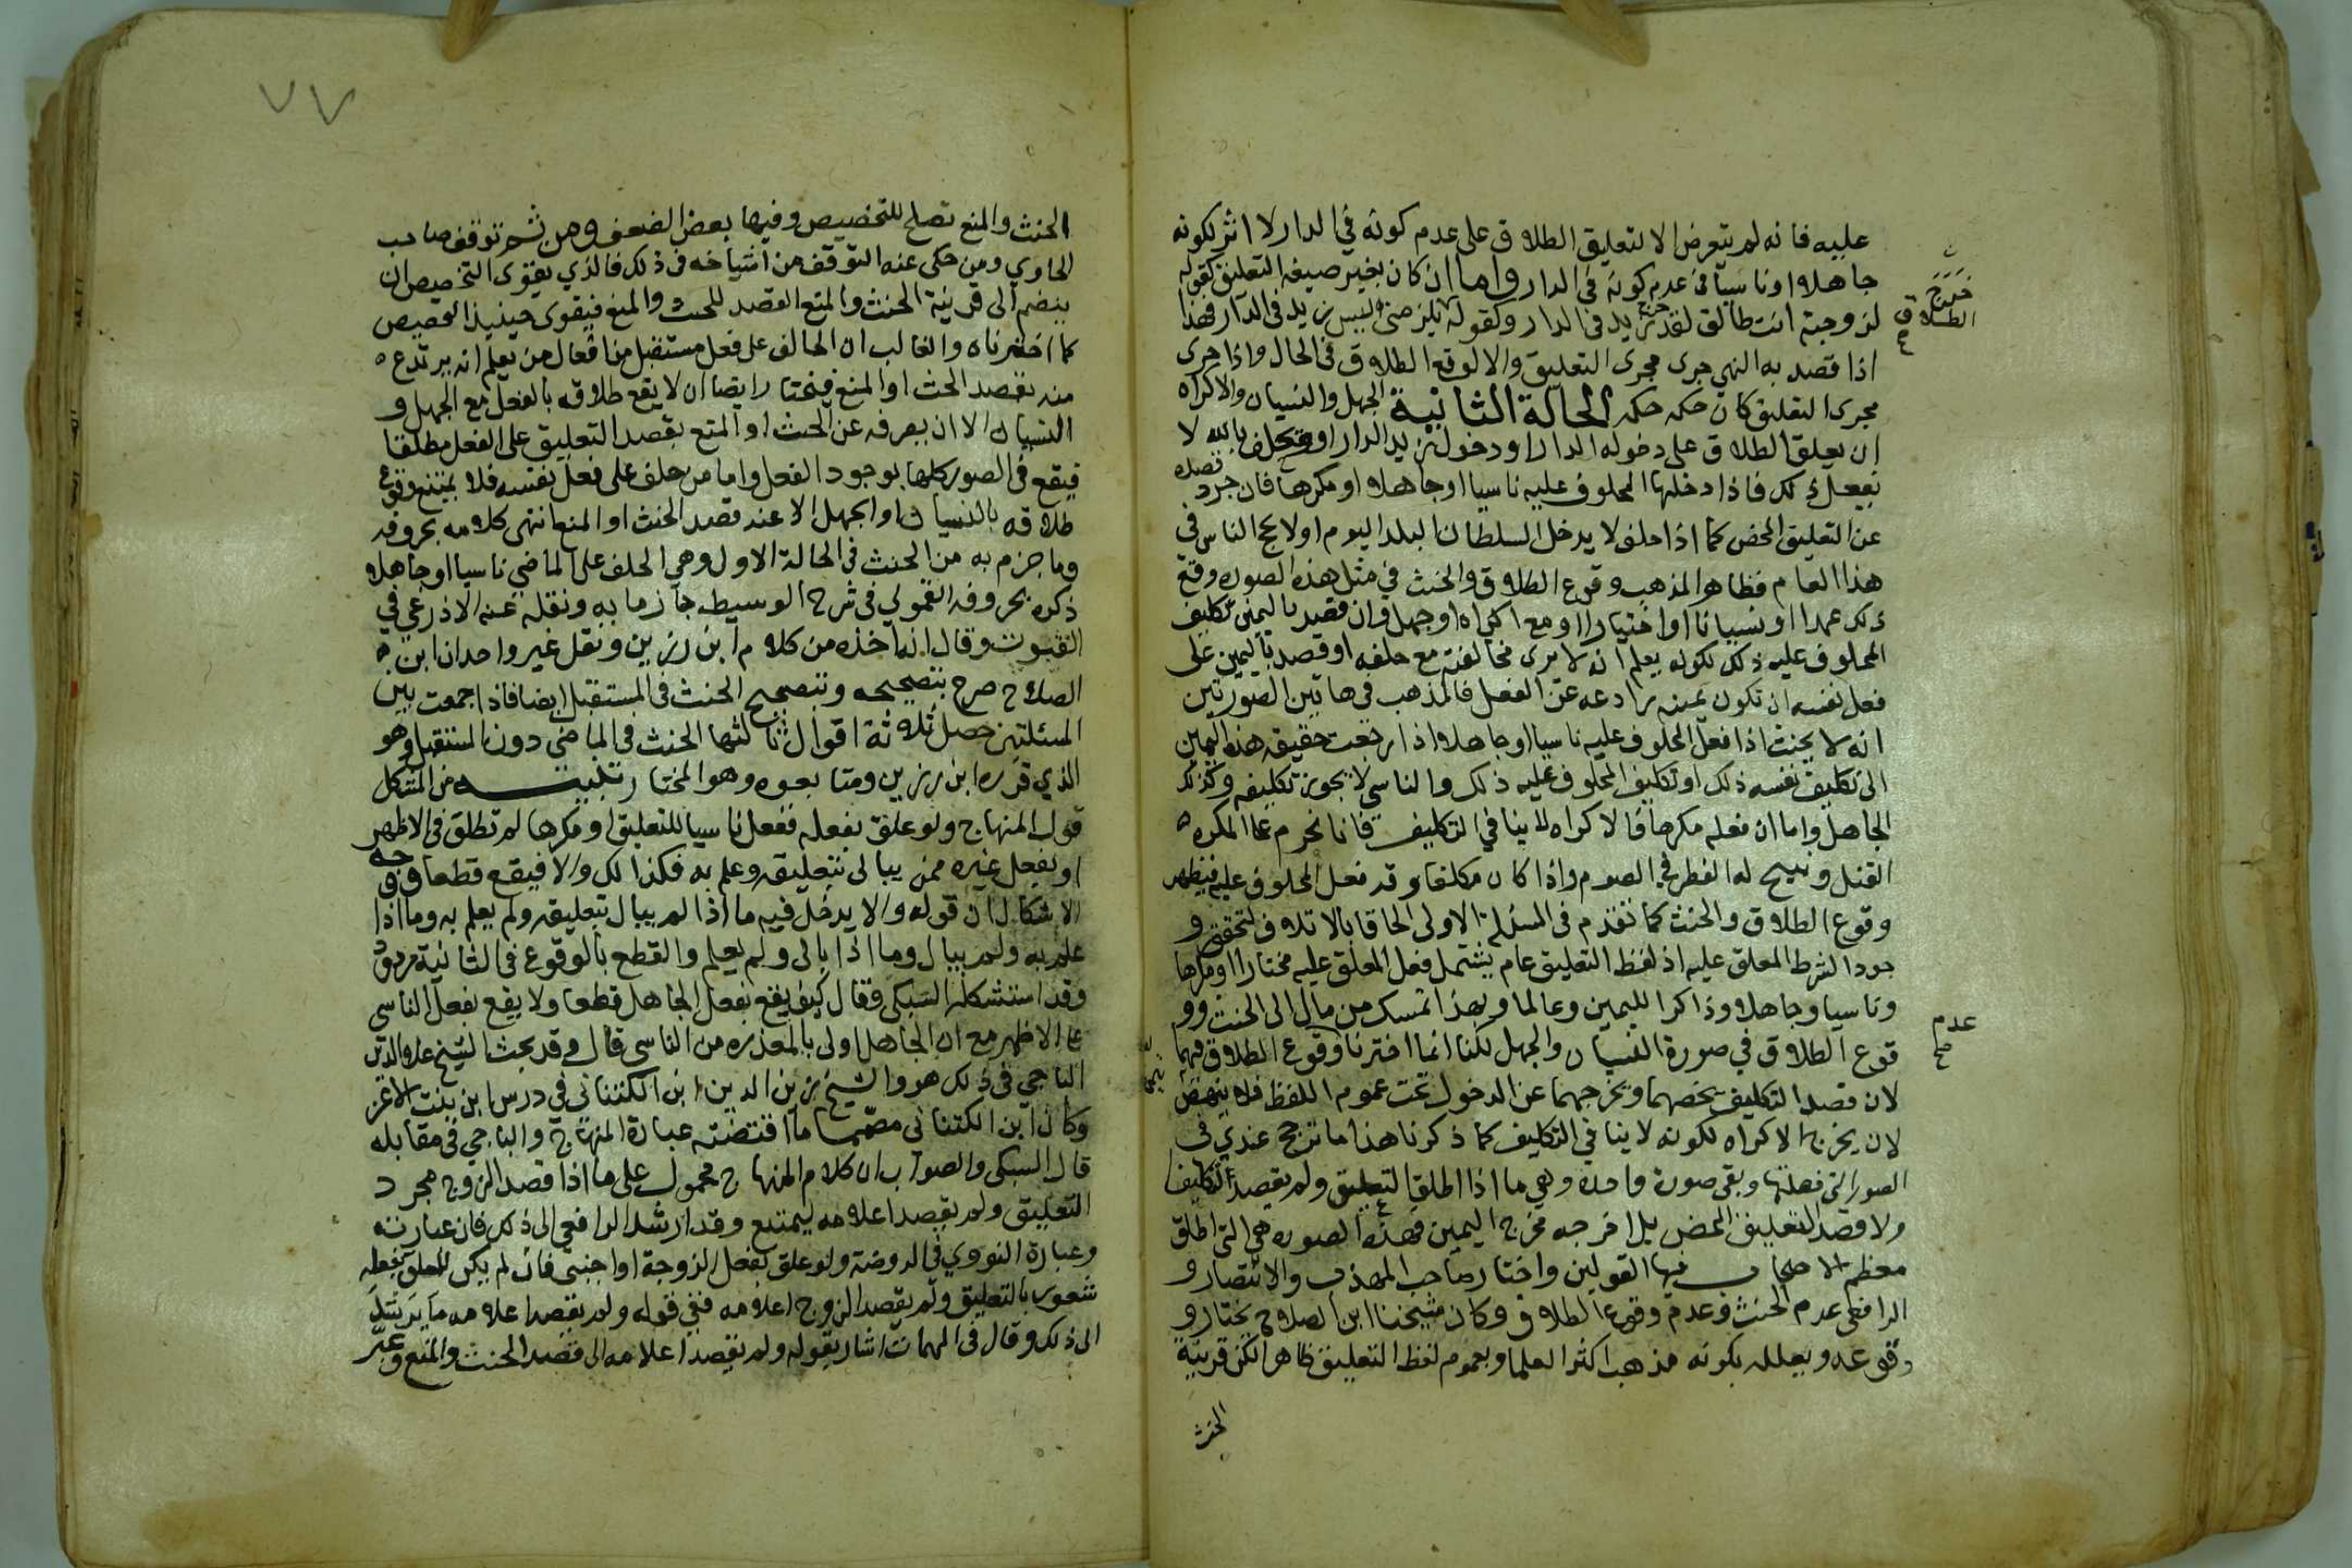 عليه فانه لم يتعرض الا لتعليق الطلاق على عدم كونه في الدار لا اثر لكونه
جاهلا او ناسيا في عدم كونه في الدار واما ان كان بغير صيغة التعليق كقوله
لزوجته انت طالق لقد خرج زيد في الدار وكقوله ليس زيد في الدار فهذا
اذا قصد به النهي جرى مجرى التعليق والا لوقع الطلاق في الحال واذا جرى
مجرى التعليق كان حكمه حكمه الحالة الثانية الجهل والنسيان والاكراه
ان يعلق الطلاق على دخوله الدار او دخول زيد الدار او يحلف بالله لا
نفعل ذلك فاذا دخلها المحلوف عليه ناسيا او جاهلا او مكرها فان جرد قصده
عن التعليق المحض كما اذا حلف لا يدخل السلطان البلد اليوم او لا يحج الناس في
هذا العام فظاهر المذهب وقوع الطلاق والحنث في مثل هذه الصوره وقع
ذلك عمدا او نسيانا او اختيارا او مع اكراه او جهل وان قصد باليمين تكليف
المحلوف عليه ذلك لكونه يعلم انه لا يرى مخالفته مع حلفه او قصد باليمين على
فعل نفسه ان تكون يمينه رادعه عن الفعل فالمذهب في هاتين الصورتين
انه لا يحنث اذا فعل المحلوف عليه ناسيا او جاهلا اذ رجعت حقيقة هذه اليمين
الى تكليف نفسه ذلك او تكليف المحلوف عليه ذلك والناسي لا يجوز تكليفه وكذلك
الجاهل واما ان فعله مكرها فالاكراه لا ينافي التكليف فانا نحرم على المكره
القتل ونبيح له الفطر في الصوم واذا كان مكلفا وقد فعل المحلوف عليه فيظهر
وقوع الطلاق والحنث كما تقدم في المسئلة الاولى الحاقا بالاتلاف لتحقق و
جود الشرط المعلق عليه اذ لفظ التعليق عام يشتمل فعل المعلق عليه مختارا او مكرها
وناسيا وجاهلا وذاكرا لليمين وعالما وبهذا تمسك من مال الى الحنث وو
قوع الطلاق في صورة النسيان والجهل لكنا انما اخترنا وقوع الطلاق فيهما
لان قصد التكليف يخصهما ويخرجهما عن الدخول تحت عموم اللفظ فلا ينهض
لان يخرج الاكراه لكونه لا ينافي التكليف كما ذكرنا هذا ما ترجح عندي في
الصور التي فصلتها وبقي صورة واحدة وهي ما اذا اطلق التعليق ولم يقصد التكليف
ولا قصد التعليق المحض بل اخرجه مخرج اليمين فهذه الصوره هي التي اطلق
معظم الاصحاب فيها القولين واختار صاحب المهذب والانتصار و
الرافعي عدم الحنث وعدم وقوع الطلاق وكان شيخنا ابن الصلاح يختار و
وقوعه ويعلله بكونه مذهب اكثر العلما وبعموم لفظ التعليق ظاهرا لكن قرينة
الحنث
خرج
الطلاق
عدم
صح
٧٧
الحنث والمنع تصلح للتخصيص وفيها بعض الضعف ومن ثم توقف صاحب
الحاوي ومن حكى عنه التوقف من اشياخه في ذلك فالذي يقوي التخصيص ان
ينضم الى قرينة الحنث والمنع القصد للحث والمنع فيقوى حينيذ التخصيص
كما اخترناه والغالب ان الحالف على فعل مستقبل من افعال من يعلم انه يرتدع
منه يقصد الحث او المنع فيختار ايضا ان لا يقع طلاقه بالفعل مع الجهل و
النسيان الا ان يصرفه عن الحث او المنع بقصد التعليق على الفعل مطلقا
فيقع في الصور كلها بوجود الفعل واما من حلف على فعل نفسه فلا يمتنع وقوع
طلاقه بالنسيان او الجهل الا عند قصد الحنث او المنع انتهى كلامه بحروفه
وما جزم به من الحنث في الحالة الاول وهي الحلف على الماضي ناسيا او جاهلا
ذكره بحروفه القمولي في شرح الوسيط جازما به ونقله عنه الاذرعي في
القبوت وقال انه اخذه من كلام ابن رزين ونقل غير واحد ان ابن
الصلاح صرح بتصحيحه وبتصحيح الحنث في المستقبل ايضا فاذا جمعت بين
المسئلتين حصل ثلاثة اقوال ثالثها الحنث في الماضي دون المستقبل وهو
الذي قرره ابن رزين ومتابعوه وهو المختار تنبيه من المشكل
قول المنهاج ولو علق بفعله ففعل ناسيا للتعليق او مكرها لم تطلق في الاظهر
او بفعل غيره ممن يبالي بتعليقه وعلم به فكذلك والا فيقع قطعا ووجه
الاشكال ان قوله والا يدخل فيه ما اذا لم يبال بتعليقه ولم يعلم به وما اذا
علم به ولم يبال وما اذا بالى ولم يعلم والقطع بالوقوع في الثانية مردود
وقد استشكله السبكي فقال كيف يقع بفعل الجاهل قطعا ولا يقع بفعل الناسي
على الاظهر مع ان الجاهل اولى بالمعذره من الناسي قال وقد بحث الشيخ علا الدين
الباجي في ذلك هو والشيخ زين الدين ابن الكتناني في درس ابن بنت الاعز
وكان ابن الكتناني مصمما ما اقتضته عبارة المنهاج والباجي في مقابله
قال السبكي والصواب ان كلام المنهاج محمول على ما اذا قصد الزوج مجرد
التعليق ولم يقصد اعلامه ليمتنع وقد ارشد الرافعي الى ذلك فان عبارته
وعبارة النووي في الروضة ولو علق بفعل الزوجة او اجنبي فان لم يكن للمعلق بفعله
شعور بالتعليق ولم يقصد الزوج اعلامه ففي قوله ولم يقصد اعلامه ما يرشد
الى ذلك وقال في المهمات اشار بقوله ولم يقصد اعلامه الى قصد الحنث والمنع وعبر